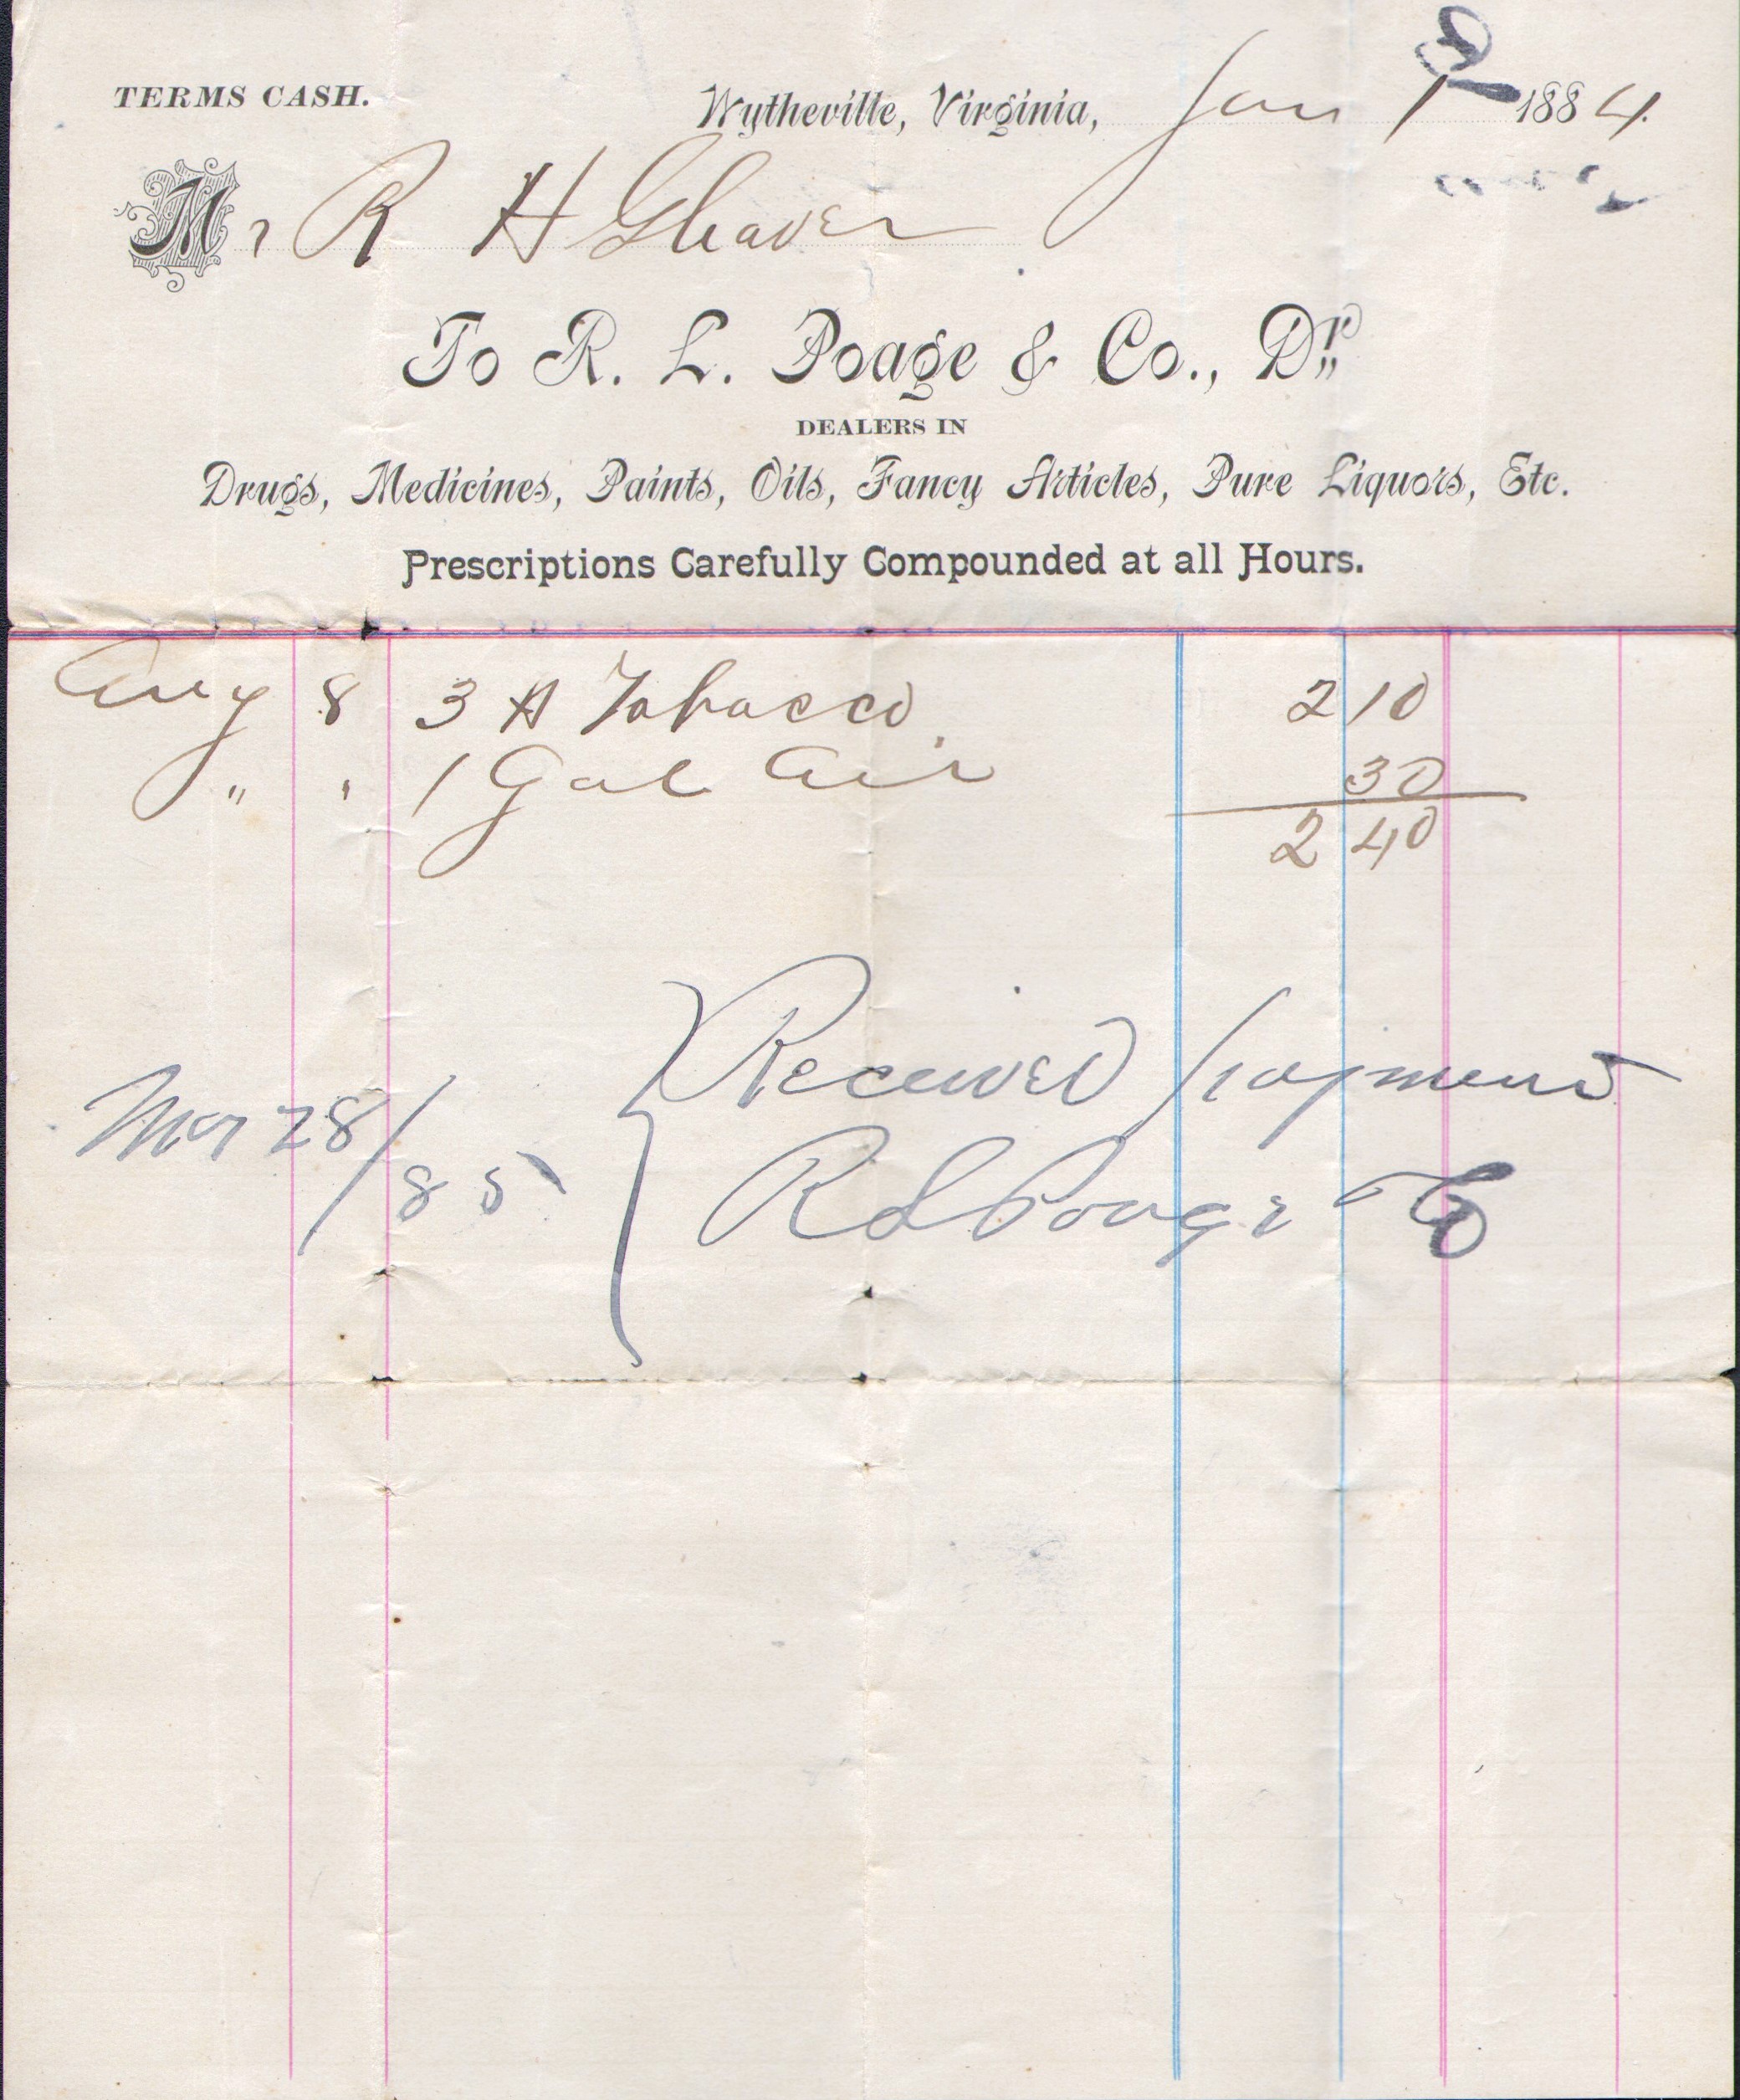 TERMS CASH.
Wytheville, Virginia, Jan 1 1884.
Mr R H Gleaves
To R. L. Poage & Co., Dr.
DEALERS IN
Drugs, Medicines, Paints, Oils, Fancy Articles, Pure Liquors, Etc.
Prescriptions Carefully Compounded at all Hours.
Aug 8 3 # Tobacco 2 10
" " 1 Gal Oil 30
2 40
Received payment
Mar 28/85
R L Poage & Co